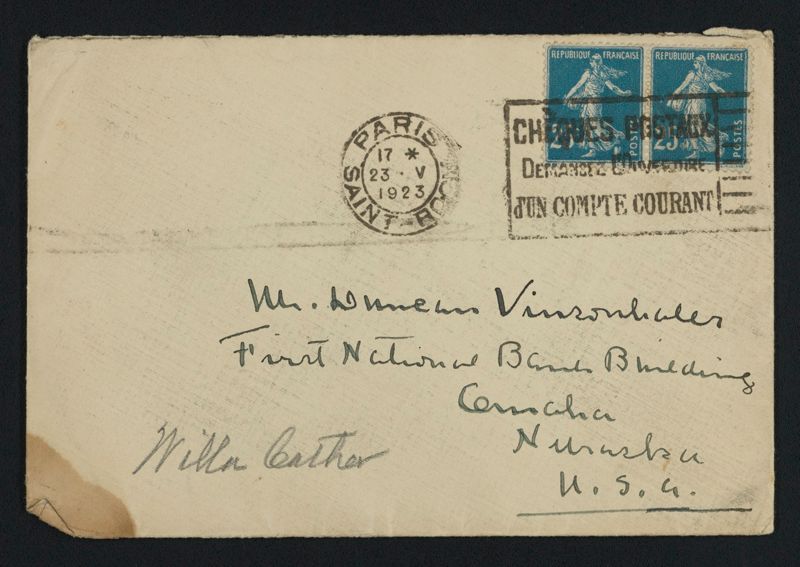 REPUBLIQUE FRANÇAISE REPUBLIQUE FRANÇAISE
POSTES POSTES
25
PARIS
17 *
23 · V
1923
SAINT-ROC
CHÈQUES POSTAUX
DEMANDEZ L'OUVERTURE
d'UN COMPTE COURANT
Mr. Duncan Vinsonhaler
First National Bank Building
Omaha
Nebraska
U. S. A.
Willa Cather